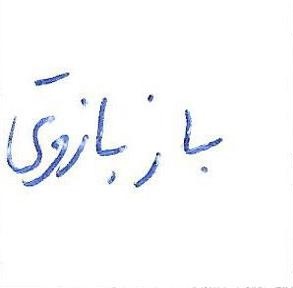 باز بازوتی